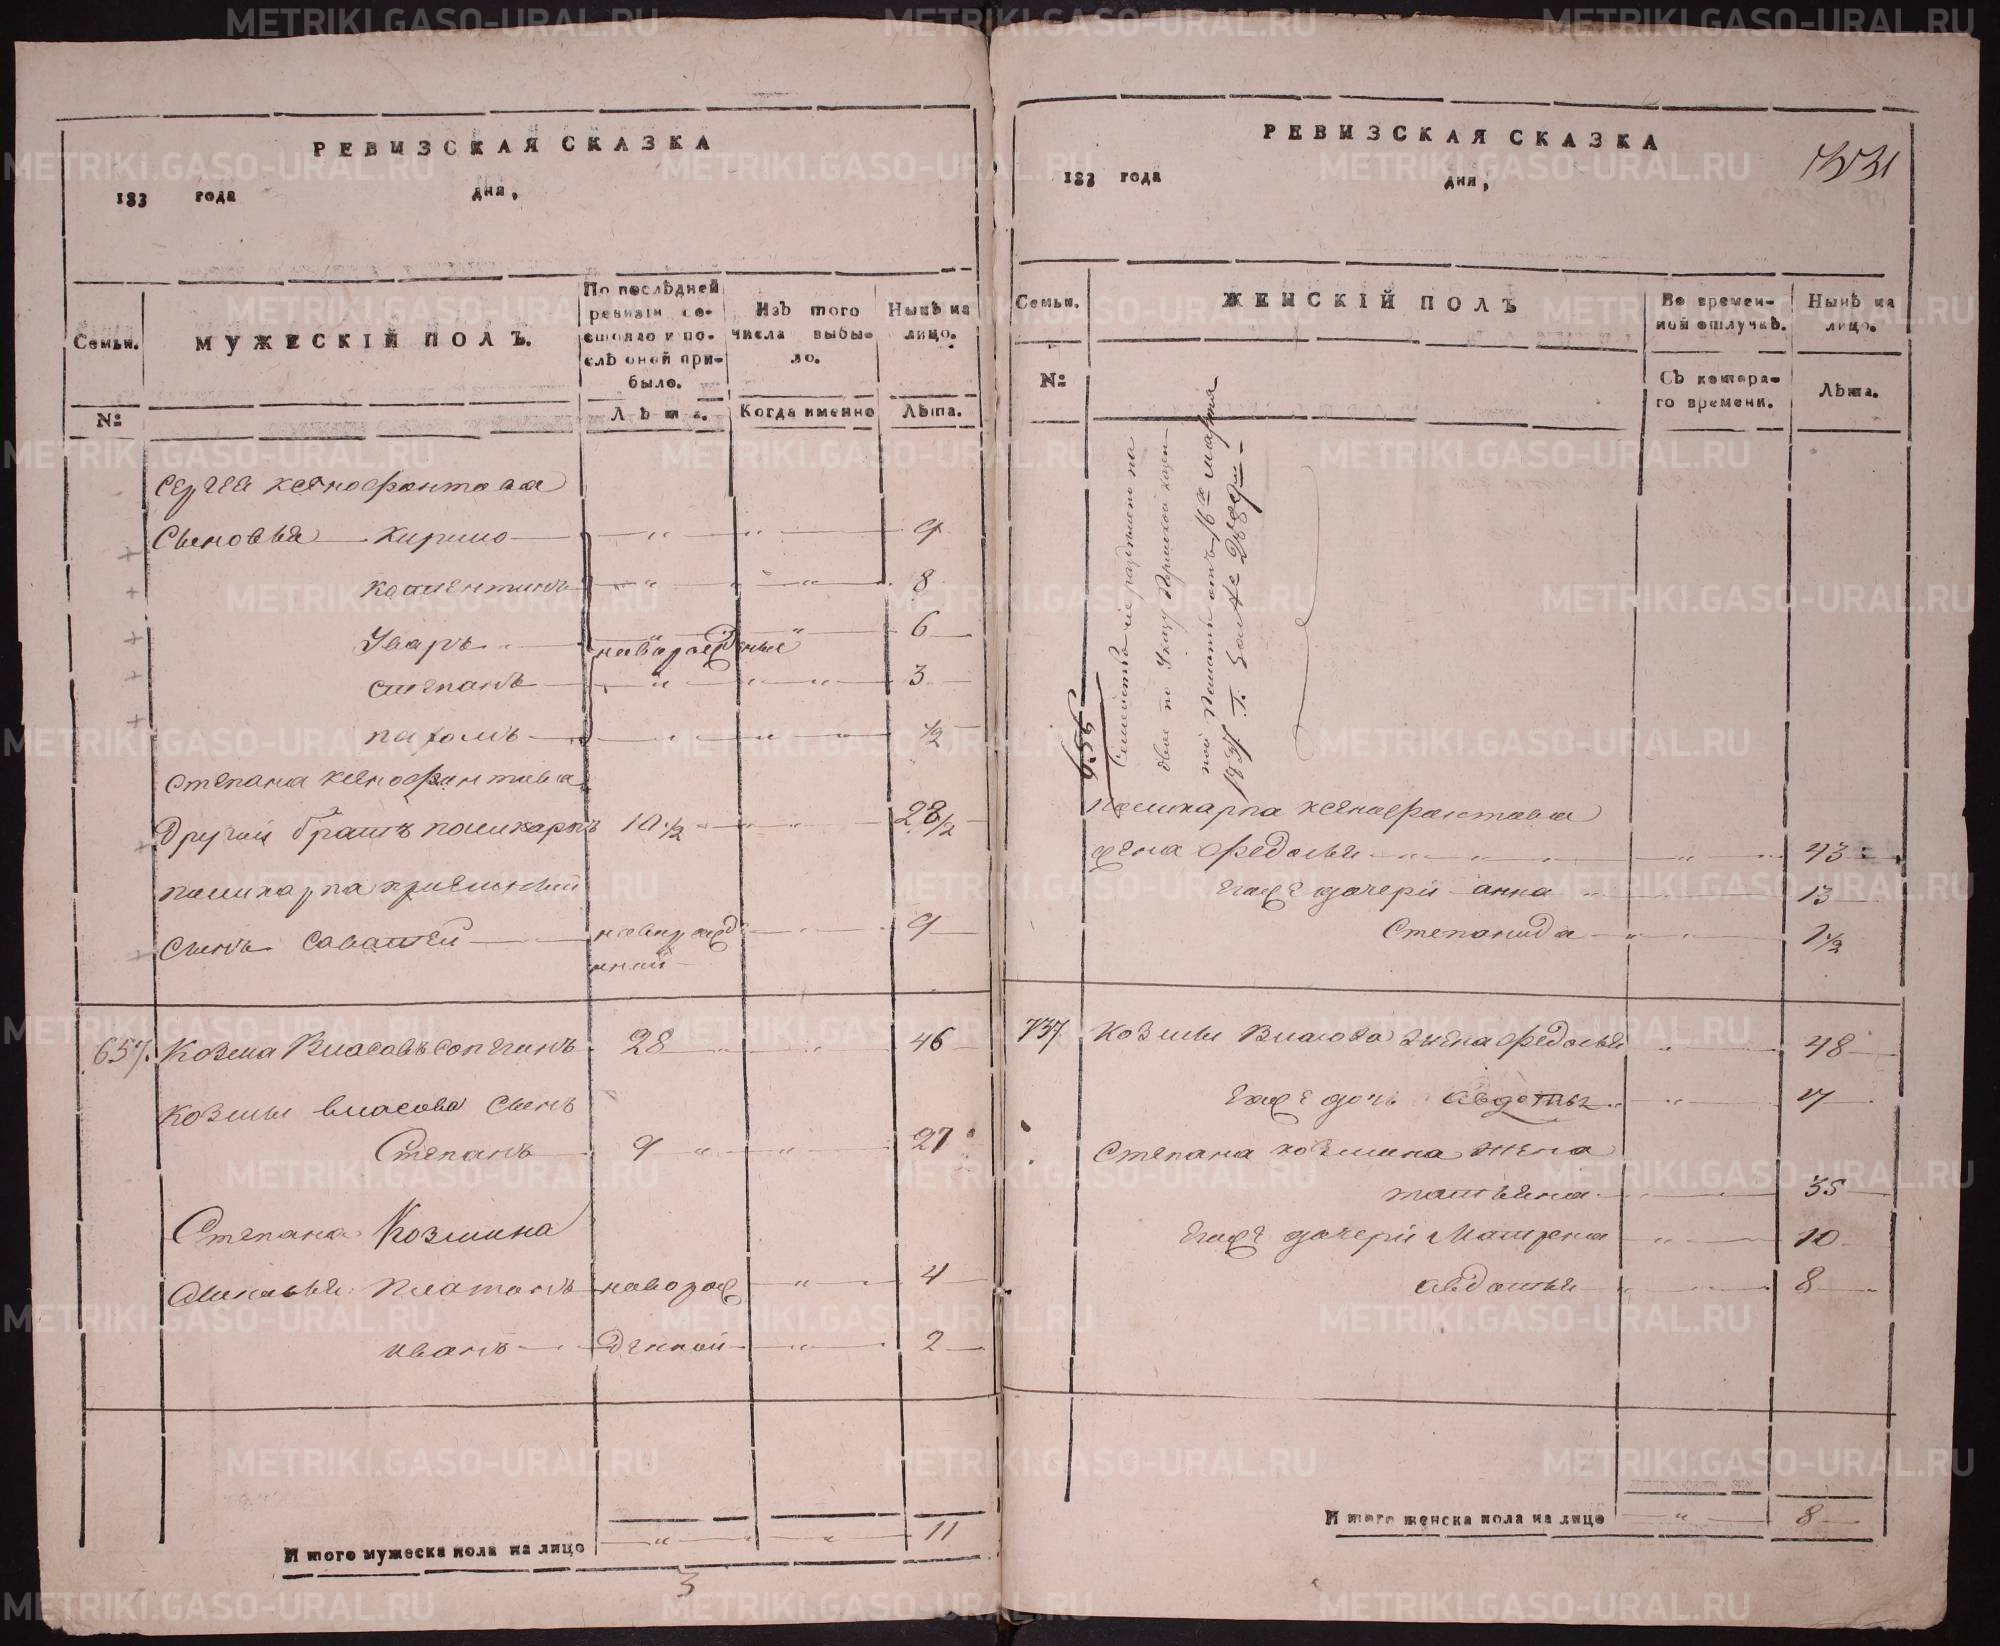 РЕВИЗСКАЯ СКАЗКА
183 года дня,
Семьи.
МУЖЕСКІЙ ПОЛЪ.
По послѣдней ревизіи состояло и послѣ оной прибыло.
Изъ того числа выбыло.
Нынѣ на лицо.
№
Лѣта.
Когда именно
Лѣта.
Сергея ксенофонтова
Сыновья Кирило 9
8
Уваръ 6
новорожденные
степанъ 3
пахомъ 1/2
степана ксенофонтова
Другой братъ поликарпъ 10 1/2 28 1/2
поликарпа
сынъ саватей новорожд 9
енной
657. Козма Власовъ 28 46
Козмы власова сынъ
Степанъ 9 27
Степана Козмина
Сыновья Платонъ новорож 4
иванъ денной 2
Итого мужеска пола на лицо 11
3
РЕВИЗСКАЯ СКАЗКА
183 года дня,
Семьи.
ЖЕНСКІЙ ПОЛЪ
Во временной отлучкѣ.
Нынѣ на лицо.
№
Съ котораго времени.
Лѣта.
656
Семейство
по Указу Пермской
марта
поликарпа ксенофонтова
жена Федосья 43
ево же дочери анна 13
Степанида 1 1/2
737. Козмы Власова жена Федосья 48
ево же дочь авдотья
Степана козмина жена
татьяна 35
ево же дочери Матрена 10
авдотья 8
Итого женска пола на лицо 8
METRIKI.GASO-URAL.RU